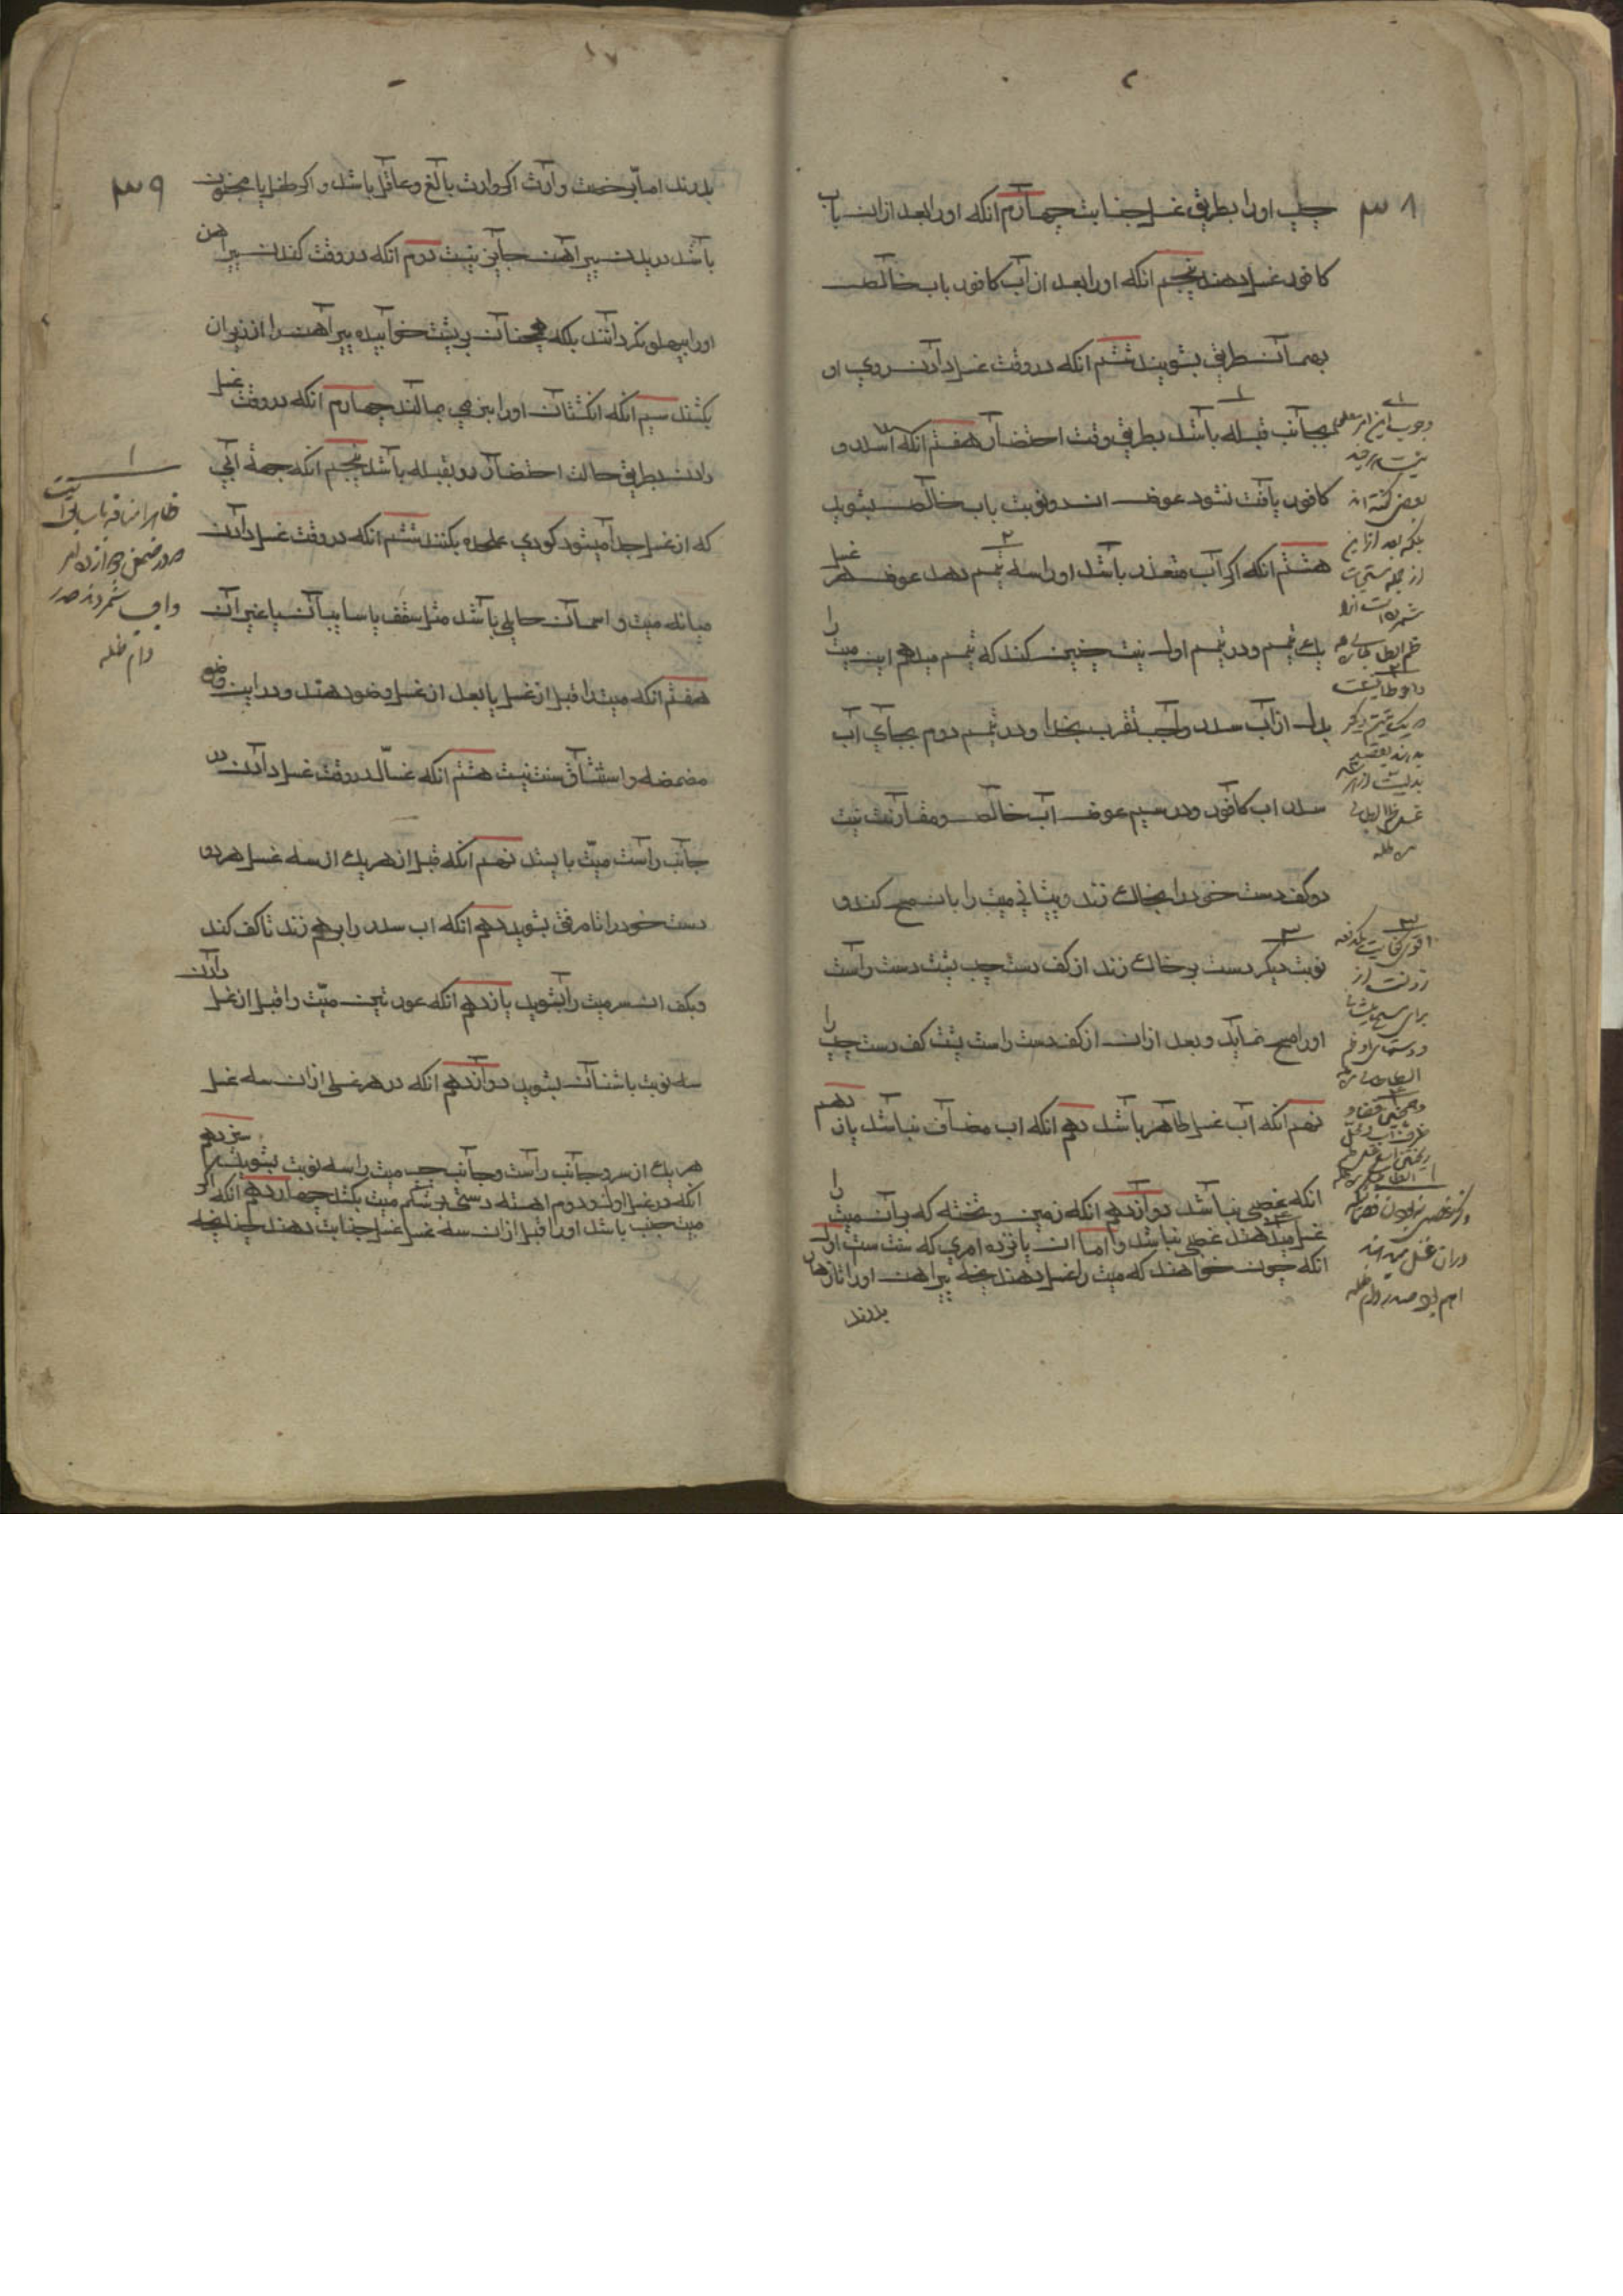 ۳۸
چپ او را بطریق غسل جنابت چهارم انکه او را بعد ازان باب
کافور غسل دهند پنجم انکه او را بعد از آب کافور باب خالص
بهمان طریق بشویند ششم انکه در وقت غسل دادن روی او
بجانب قبله باشد بطریق وقت احتضار هفتم انکه اکر سدر و
کافور یافت نشود عوض ان دو نوبت باب خالص بشوید
هشتم انکه اکر آب متعذر باشد او را سه تیمم دهد عوض هر غسل
یک تیمم و در تیمم اول نیت چنین کند که تیمم میدهم این میت را
بدل از آب سدر واجب تقرب بخدا و در تیمم دوم بجای آب
سدر اب کافور و در سیم عوض آب خالص و مقارنت نیت
دو کف دست خود را بخاک زند و پیشانی میت را بان مسح کند و
نوبت دیکر دست بر خاک زند از کف دست چپ پشت دست راست
او را مسح نماید و بعد ازان از کف دست راست پشت کف دست چپ را
نهم انکه آب غسل طاهر باشد دهم انکه اب مضاف نباشد یازدهم
انکه غصبی نباشد دوازدهم انکه زمین و تخته که بر آن میت را
غسل میدهند غصبی نباشد و اما ان پانزده امری که سنت ست اول
انکه چون خواهند که میت را غسل دهند یخه پیراهن او را تا زهار
بدرند
وجوب این امر معلوم
نیست
بعضی کفته اند
بلکه بعد از این
از جمله مستحبات
شمرده است
اقوی کفایت یکدفعه
زدنست از
برای مسح پیشانی
و دستها
دام ظله
۳۹
بدرند اما برخصت وارث اکر وارث بالغ و عاقل باشد و اکر طفل یا مجنون
باشد دریدن پیراهن جایز نیست دوم انکه در وقت کندن پیراهن
او را بپهلو نکردانند بلکه همچنان بر پشت خوابیده پیراهن را از زیر ان
بکشند سیم انکه انکشتان او را بنرمی بمالند چهارم انکه در وقت غسل
دادن بطریق حالت احتضار رو بقبله باشد پنجم انکه جهة آبی
که از غسل جدا میشود کودی علحده بکنند ششم انکه در وقت غسل دادن
میانه میت و اسمان حایلی باشد مثل سقف یا سایبان یا غیر آن
هفتم انکه میت را قبل از غسل یا بعد از غسل وضو دهند و در این وضو
مضمضه و استنشاق سنت نیست هشتم انکه غسال در وقت غسل دادن در
جانب راست میت بایستد نهم انکه قبل از هر یک از سه غسل هر دو
دست خود را تا مرفق بشوید دهم انکه اب سدر را برهم زند تا کف کند
و بکف ان سر میت را بشوید یازدهم انکه عورتین میت را قبل از غسل دادن
سه نوبت باشنان بشوید دوازدهم انکه در هر غسلی ازان سه غسل
هر یک از سر و جانب راست و جانب چپ میت را سه نوبت بشویند سیزدهم
انکه در غسل اول و دوم اهسته دستی بر شکم میت بکشد چهاردهم انکه اکر
میت جنب باشد او را قبل ازان سه غسل غسل جنابت دهند چنانچه
دام ظله